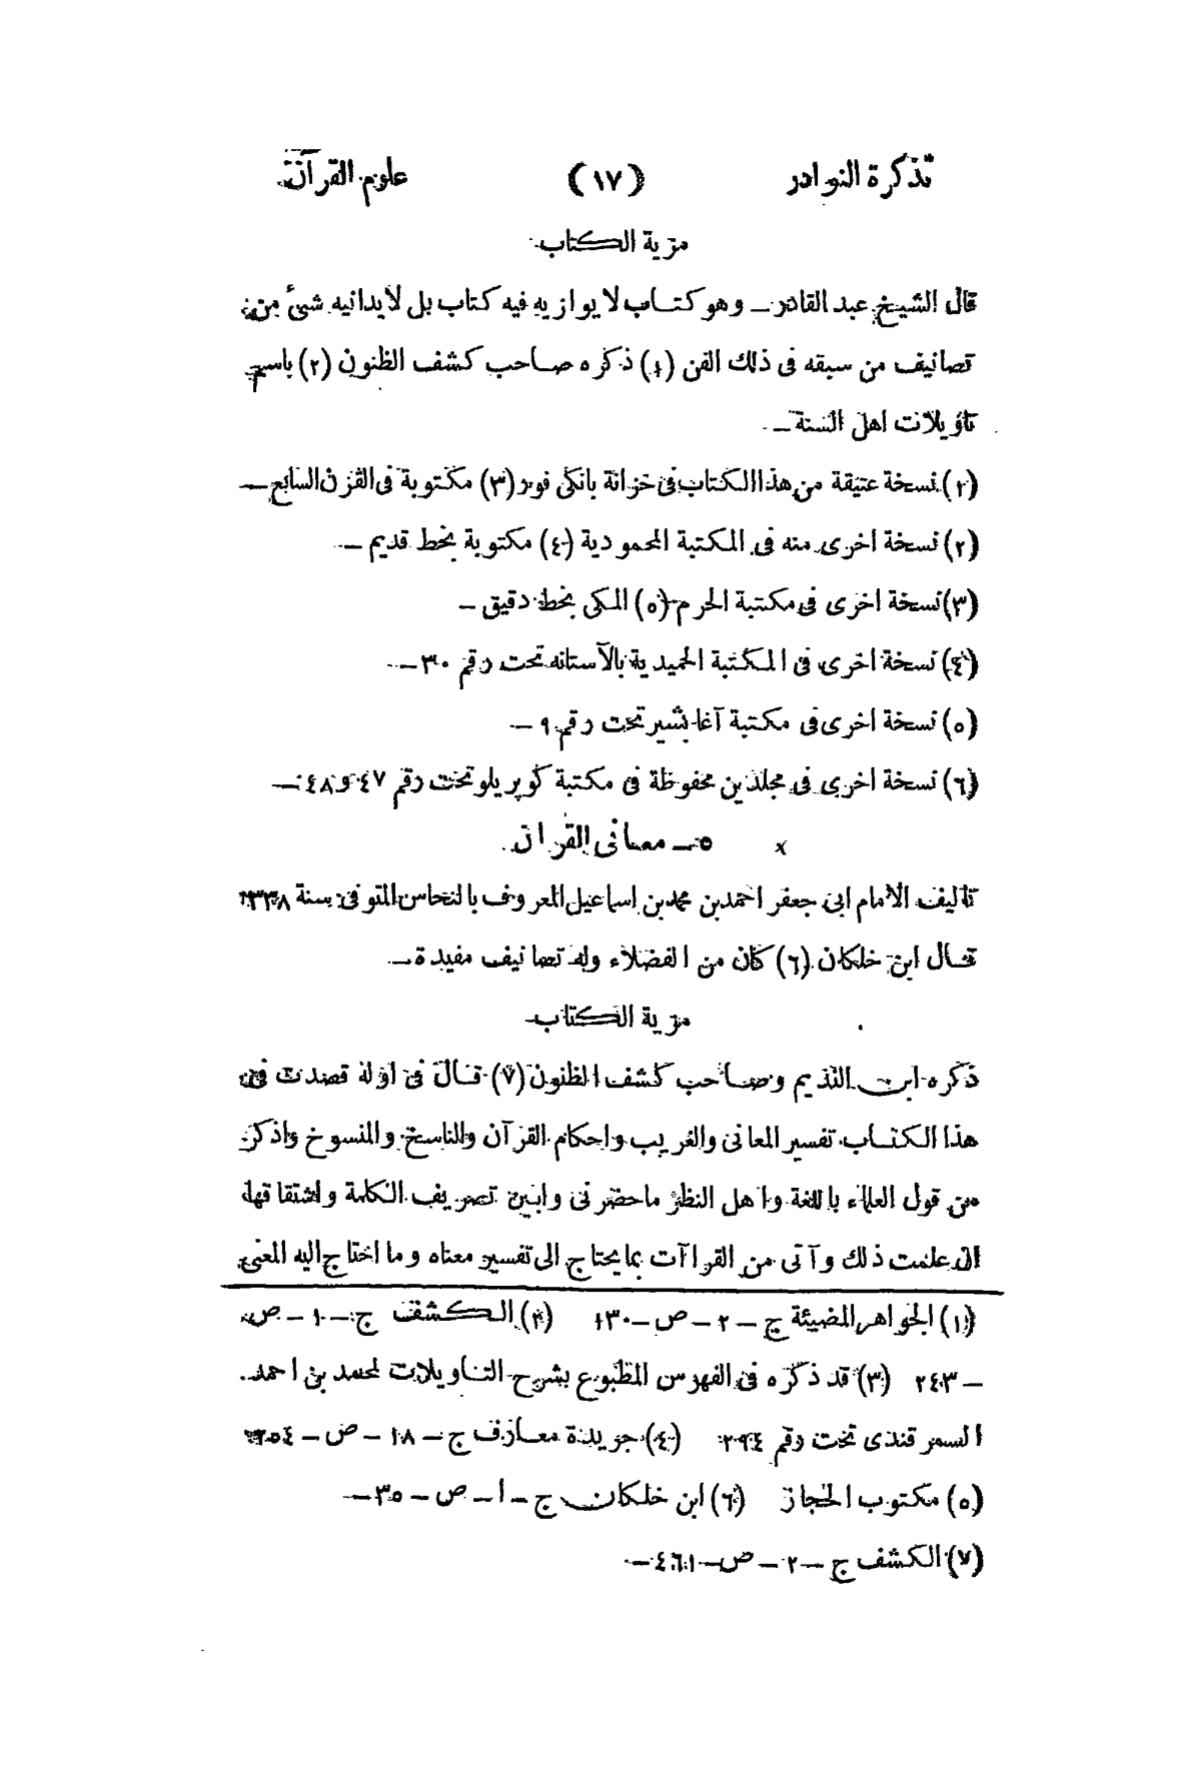 تذكرة النوادر (١٧) علوم القرآن
مزية الكتاب
قال الشيخ عبد القادر – وهو كتاب لا يوازيه فيه كتاب بل لايدانيه شئ من
تصانيف من سبقه فى ذلك الفن (١) ذكره صاحب كشف الظنون (٢) باسم
تاؤيلات اهل السنة –
(١) نسخة عتيقة من هذا الكتاب فى خزانة بانكى فور (٣) مكتوبة فى القرن السابع –
(٢) نسخة اخرى منه فى المكتبة المحمودية (٤) مكتوبة بخط قديم –
(٣) نسخة اخرى فى مكتبة الحرم (٥) المكى بخط دقيق –
(٤) نسخة اخرى فى المكتبة الحميدية بالآستانه تحت رقم ٣٠ –
(٥) نسخة اخرى فى مكتبة آغا بشير تحت رقم ٩ –
(٦) نسخة اخرى فى مجلدين محفوظة فى مكتبة كوپريلو تحت رقم ٤٧ و ٤٨ –
x ٥ – معانى القران
تاليف الامام ابى جعفر احمد بن محمد بن اسماعيل المعروف بالنحاس المتوفى سنة ٣٣٨
قال ابن خلكان (٦) كان من الفضلاء وله تصانيف مفيدة –
مزية الكتاب
ذكره ابن النديم وصاحب كشف الظنون (٧) قال فى اوله قصدت فى
هذا الكتاب تفسير المعانى والغريب واحكام القرآن والناسخ والمنسوخ واذكر
من قول العلماء باللغة واهل النظر ماحضرنى وابين تصريف الكلمة واشتقاقها
ان علمت ذلك وآتى من القراآت بما يحتاج الى تفسير معناه وما احتاج اليه المعنى
(١) الجواهر المضيئة ج – ٢ – ص – ١٣٠ (٢) الكشف ج – ١ – ص
– ٢٤٣ (٣) قد ذكره فى الفهرس المطبوع بشرح التاويلات لمحمد بن احمد
السمرقندى تحت رقم ٢٩٤ (٤) جريدة معارف ج – ١٨ – ص – ٢٥٤
(٥) مكتوب الحجاز (٦) ابن خلكان ج – ا – ص – ٣٥ –
(٧) الكشف ج – ٢ – ص – ٤٦١ –